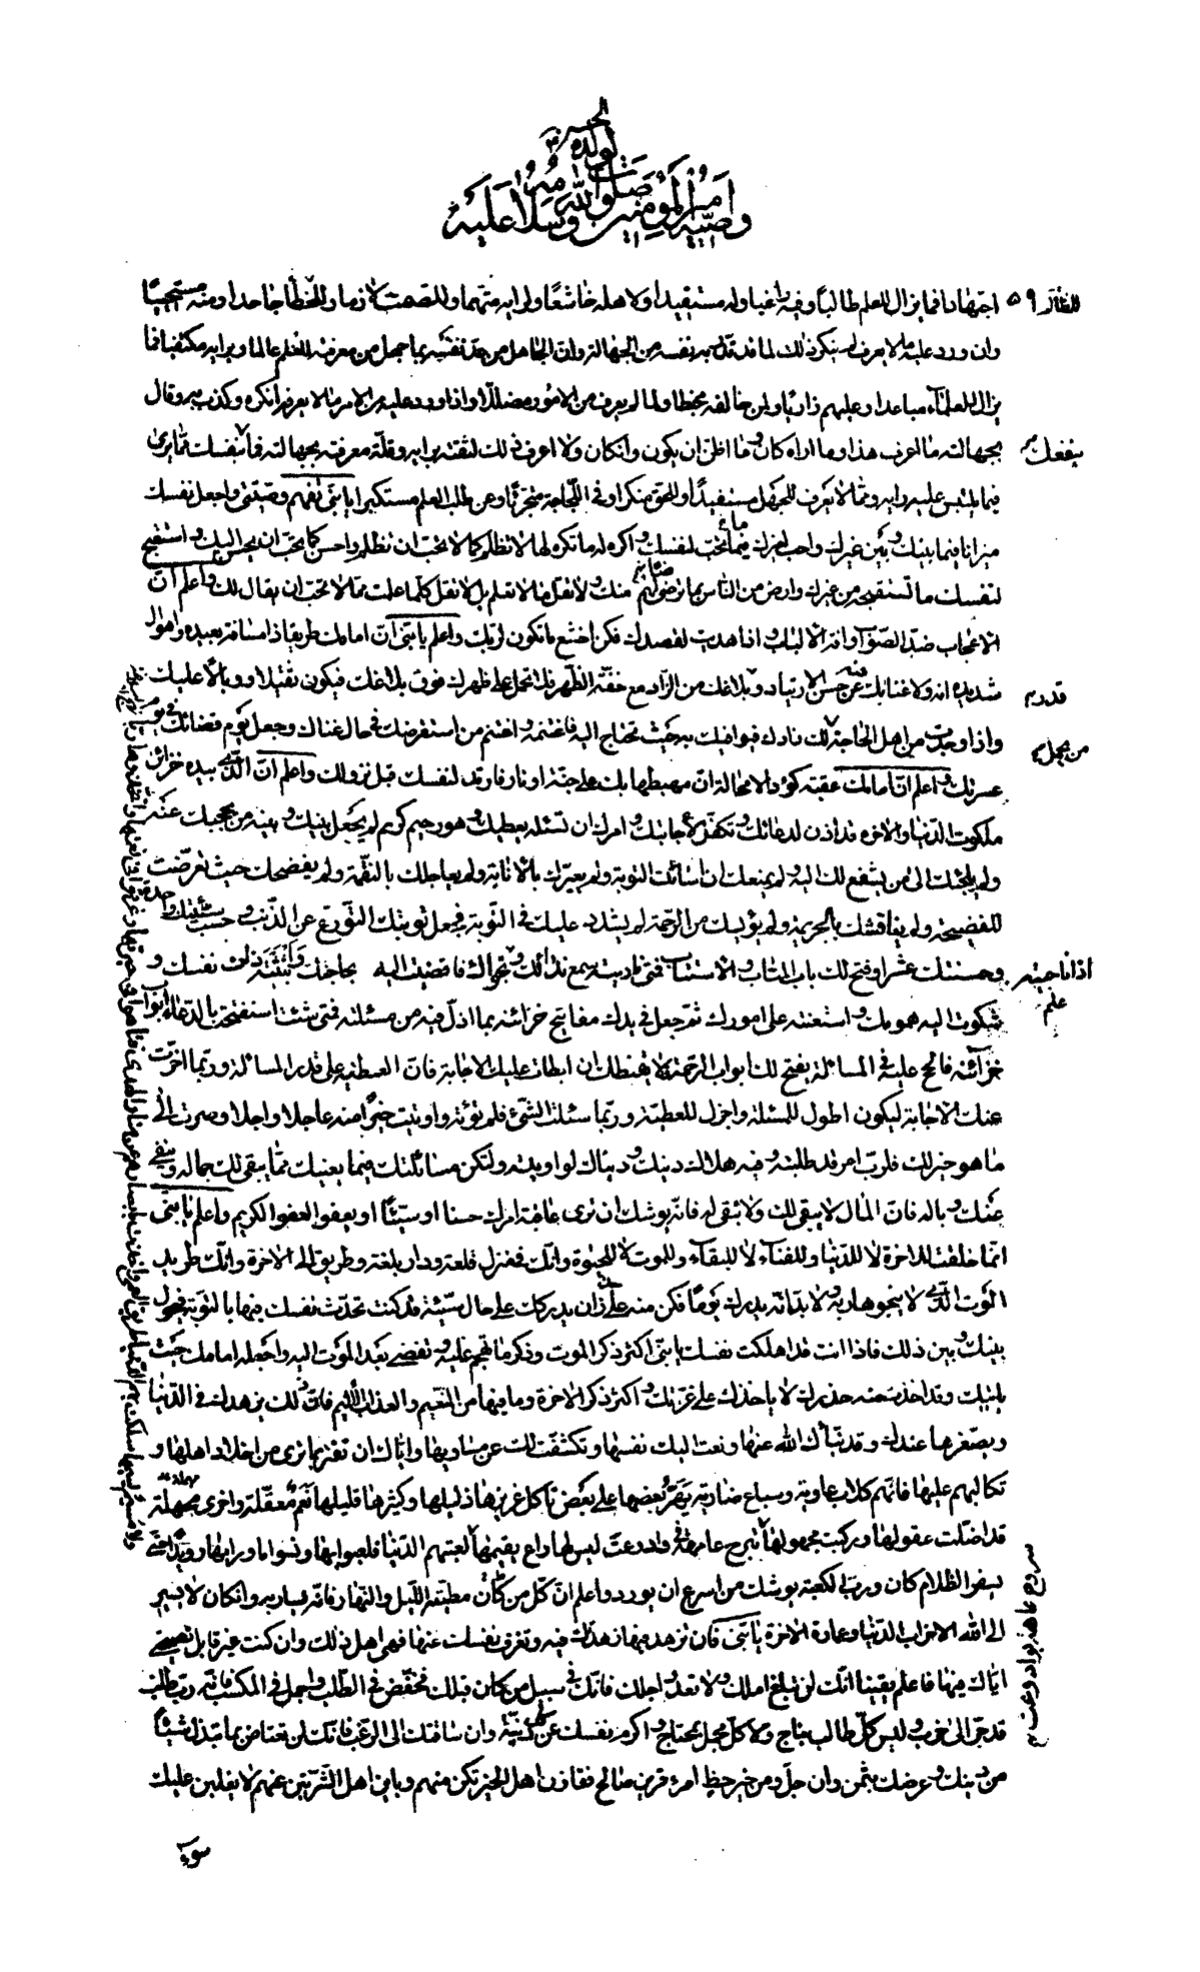 وصية امير المؤمنين صلوات الله وسلامه عليه لولده الحسن
اجتهادا فما يزال للعلم طالبا وفيه راغبا وله مستفيدا ولاهله خاشعا ولرايه متهما وللصمت لازما وللخطأ جاحدا ومنه مستحييا
وان ورد عليه ما لا يعرف لم ينكر ذلك لما قد قدر به نفسه من الجهالة وان الجاهل من عد نفسه بما جهل من معرفة العلم عالما وبرايه مكتفيا فما
يزال للعلماء مباعدا وعليهم زاريا ولمن خالفه مخطا ولما لم يعرف من الامور مضللا واذا ورد عليه من الامر ما لا يعرفه انكره وكذب به وقال
بجهالته ما اعرف هذا وما اراه كان وما اظن ان يكون وانى كان ولا اعرف ذلك لثقته برايه وقلة معرفته بجهالته فما ينفك مما يرى
فيما يلتبس عليه رايه ومما لا يعرف للجهل مستفيدا وللحق منكرا وفي اللجاجة متجريا وعن طلب العلم مستكبرا يا بنى تفهم وصيتى واجعل نفسك
ميزانا فيما بينك وبين غيرك واحب لغيرك ما تحب لنفسك واكره له ما تكره لها لا تظلم كما لا تحب ان تظلم واحسن كما تحب ان يحسن اليك واستقبح
لنفسك ما تستقبحه من غيرك وارض من الناس بما ترضى لهم منك ولا تقل ما لا تعلم بل لا تقل كلما علمت مما لا تحب ان يقال لك واعلم ان
الاعجاب ضد الصواب وافة الالباب واذا هديت لقصدك فكن اخشع ما تكون لربك واعلم يا بنى ان امامك طريقا ذا مسافة بعيدة واهوال
شديدة انه ولا غنا بك عن حسن الارتياد وبلاغك من الزاد مع خفة الظهر فلا تحمل على ظهرك فوق بلاغك فيكون ثقيلا ووبالا عليك
واذا وجدت من اهل الحاجة لك زادك فيوافيك به حيث تحتاج اليه فاغتنمه واغتنم من استقرضك في حال غناك وجعل يوم قضائك في يوم
عسرتك واعلم ان امامك عقبة كؤدا لا محالة ان مهبطها بك على جنة او نار فارتد لنفسك قبل نزولك واعلم ان الذى بيده خزائن
ملكوت الدنيا والاخرة قد اذن لدعائك وتكفل لاجابتك وامرك ان تسئله يعطيك وهو رحيم كريم لم يجعل بينك وبينه من يحجبك عنه
ولم يلجئك الى من يشفع لك اليه ولم يمنعك ان اسائت التوبة ولم يعيرك بالانابة ولم يعاجلك بالنقمة ولم يفضحك حيث تعرضت
للفضيحة ولم يناقشك بالجريمة ولم يؤيسك من الرحمة لم يشدد عليك في التوبة فجعل توبتك التورع عن الذنب وحسب سيئتك واحدة
وحسنتك عشرا وفتح لك باب المتاب والاستيناف فمتى ناديته سمع ندائك ونجواك فافضيت اليه بحاجتك وابثثته ذات نفسك و
شكوت اليه همومك واستعنته على امورك ثم جعل في يدك مفاتيح خزائنه بما اذن فيه من مسئلته فمتى شئت استفتحت بالدعاء ابواب
خزائنه فالح عليه في المسالة يفتح لك ابواب الرحمة لا يقنطك ان ابطات عليك الاجابة فان العطية على قدر المسالة وربما اخرت
عنك الاجابة ليكون اطول للمسئلة واجزل للعطية وربما سئلت الشئ فلم تؤته واوتيت خيرا منه عاجلا واجلا وصرت الى
ما هو خير لك فلرب امر قد طلبته وفيه هلاك دينك ودنياك لو اوتيته ولتكن مسالتك فيما يعنيك مما يبقى لك جماله وينفى
عنك وباله فان المال لا يبقى لك ولا تبقى له فانه يوشك ان ترى عاقبة امرك حسنا او سيئا او يعفو العفو الكريم واعلم يا بنى
انما خلقت للاخرة لا للدنيا وللفناء لا للبقاء وللموت لا للحيوة وانك في منزل قلعة ودار بلغة وطريق الى الاخرة وانك طريد
الموت الذى لا ينجو هاربه ولا بد انه يدركه يوما فكن منه على حذر ان يدركك على حال سيئة قد كنت تحدث نفسك فيها بالتوبة فيحول
بينك وبين ذلك فاذا انت قد اهلكت نفسك يا بنى اكثر ذكر الموت وذكر ما تهجم عليه وتفضى بعد الموت اليه واجعله امامك حيث
ياتيك وقد اخذت منه حذرك لا ياخذك على غرتك واكثر ذكر الاخرة وما فيها من النعيم والعذاب الاليم فان ذلك يزهدك في الدنيا
ويصغرها عندك وقد نبأك الله عنها ونعت اليك نفسها وتكشفت لك عن مساويها واياك ان تغتر بما ترى من اخلاد اهلها و
تكالبهم عليها فانهم كلاب عاوية وسباع ضارية يهر بعضها على بعض ياكل عزيزها ذليلها وكثيرها قليلها نعم معقلة واخرى مهملة
قد اضلت عقولها وركبت مجهولها
ليس لها راع يقيمها لعبتهم الدنيا فلعبوا بها ونسوا ما ورائها رويدا حتى
يسفر الظلام كان ورب الكعبة يوشك من اسرع ان يورد واعلم ان كل من كانت مطيته الليل والنهار فانه يسار به وان كان لا يسير
ابى الله الا خراب الدنيا وعمارة الاخرة يا بنى فان تزهد فيما زهدتك فيه وتعزف نفسك عنها فهى اهل ذلك وان كنت غير قابل نصيحتى
اياك فيها فاعلم يقينا انك لن تبلغ املك ولا تعدو اجلك فانك في سبيل من كان قبلك فخفض في الطلب واجمل في المكسب فانه رب طلب
قد جر الى حرب وليس كل طالب بناج ولا كل مجمل بمحتاج واكرم نفسك عن كل دنية وان ساقتك الى الرغب فانك لن تعتاض بما تبذل شيئا
من دينك وعرضك بثمن وان جل ومن خير حظ امرء قرين صالح فقارن اهل الخير تكن منهم وباين اهل الشر تبن عنهم لا يغلبن عليك
سوء